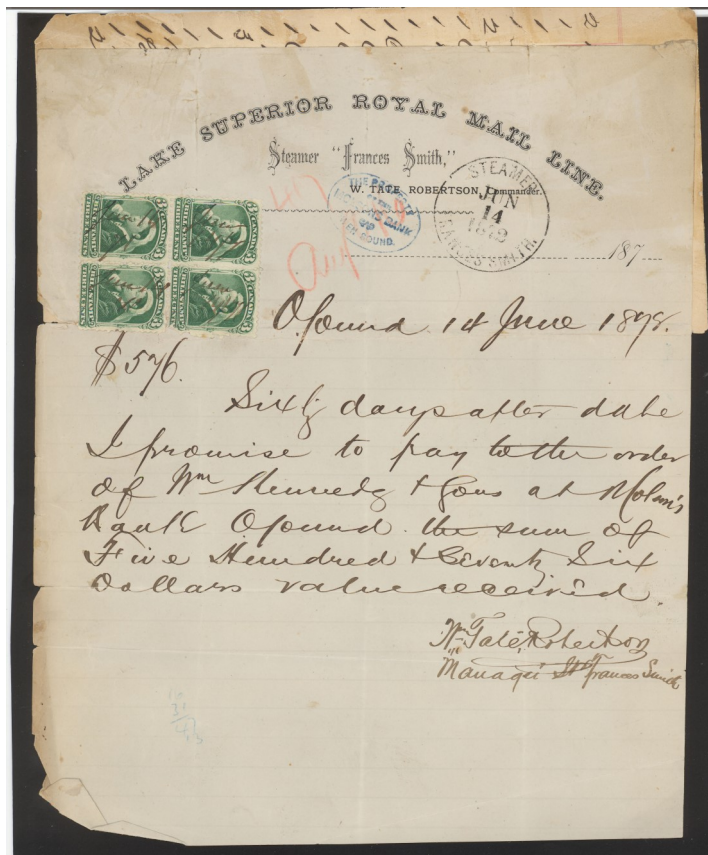 LAKE SUPERIOR ROYAL MAIL LINE.
Steamer "Frances Smith,"
W. TATE ROBERTSON, Commander.
STEAMER
JUN
14
1878
FRANCES SMITH.
THE PROPERTY
OF THE
MOLSONS BANK
OWEN SOUND.
187
Aug
O Sound 14 June 1878.
$576.
Sixty days after date
I promise to pay to the order
of Wm Kennedy & Sons at Molson's
Bank O Sound the sum of
Five Hundred & Seventy Six
Dollars value received.
W. Tate Robertson
Manager Str Frances Smith